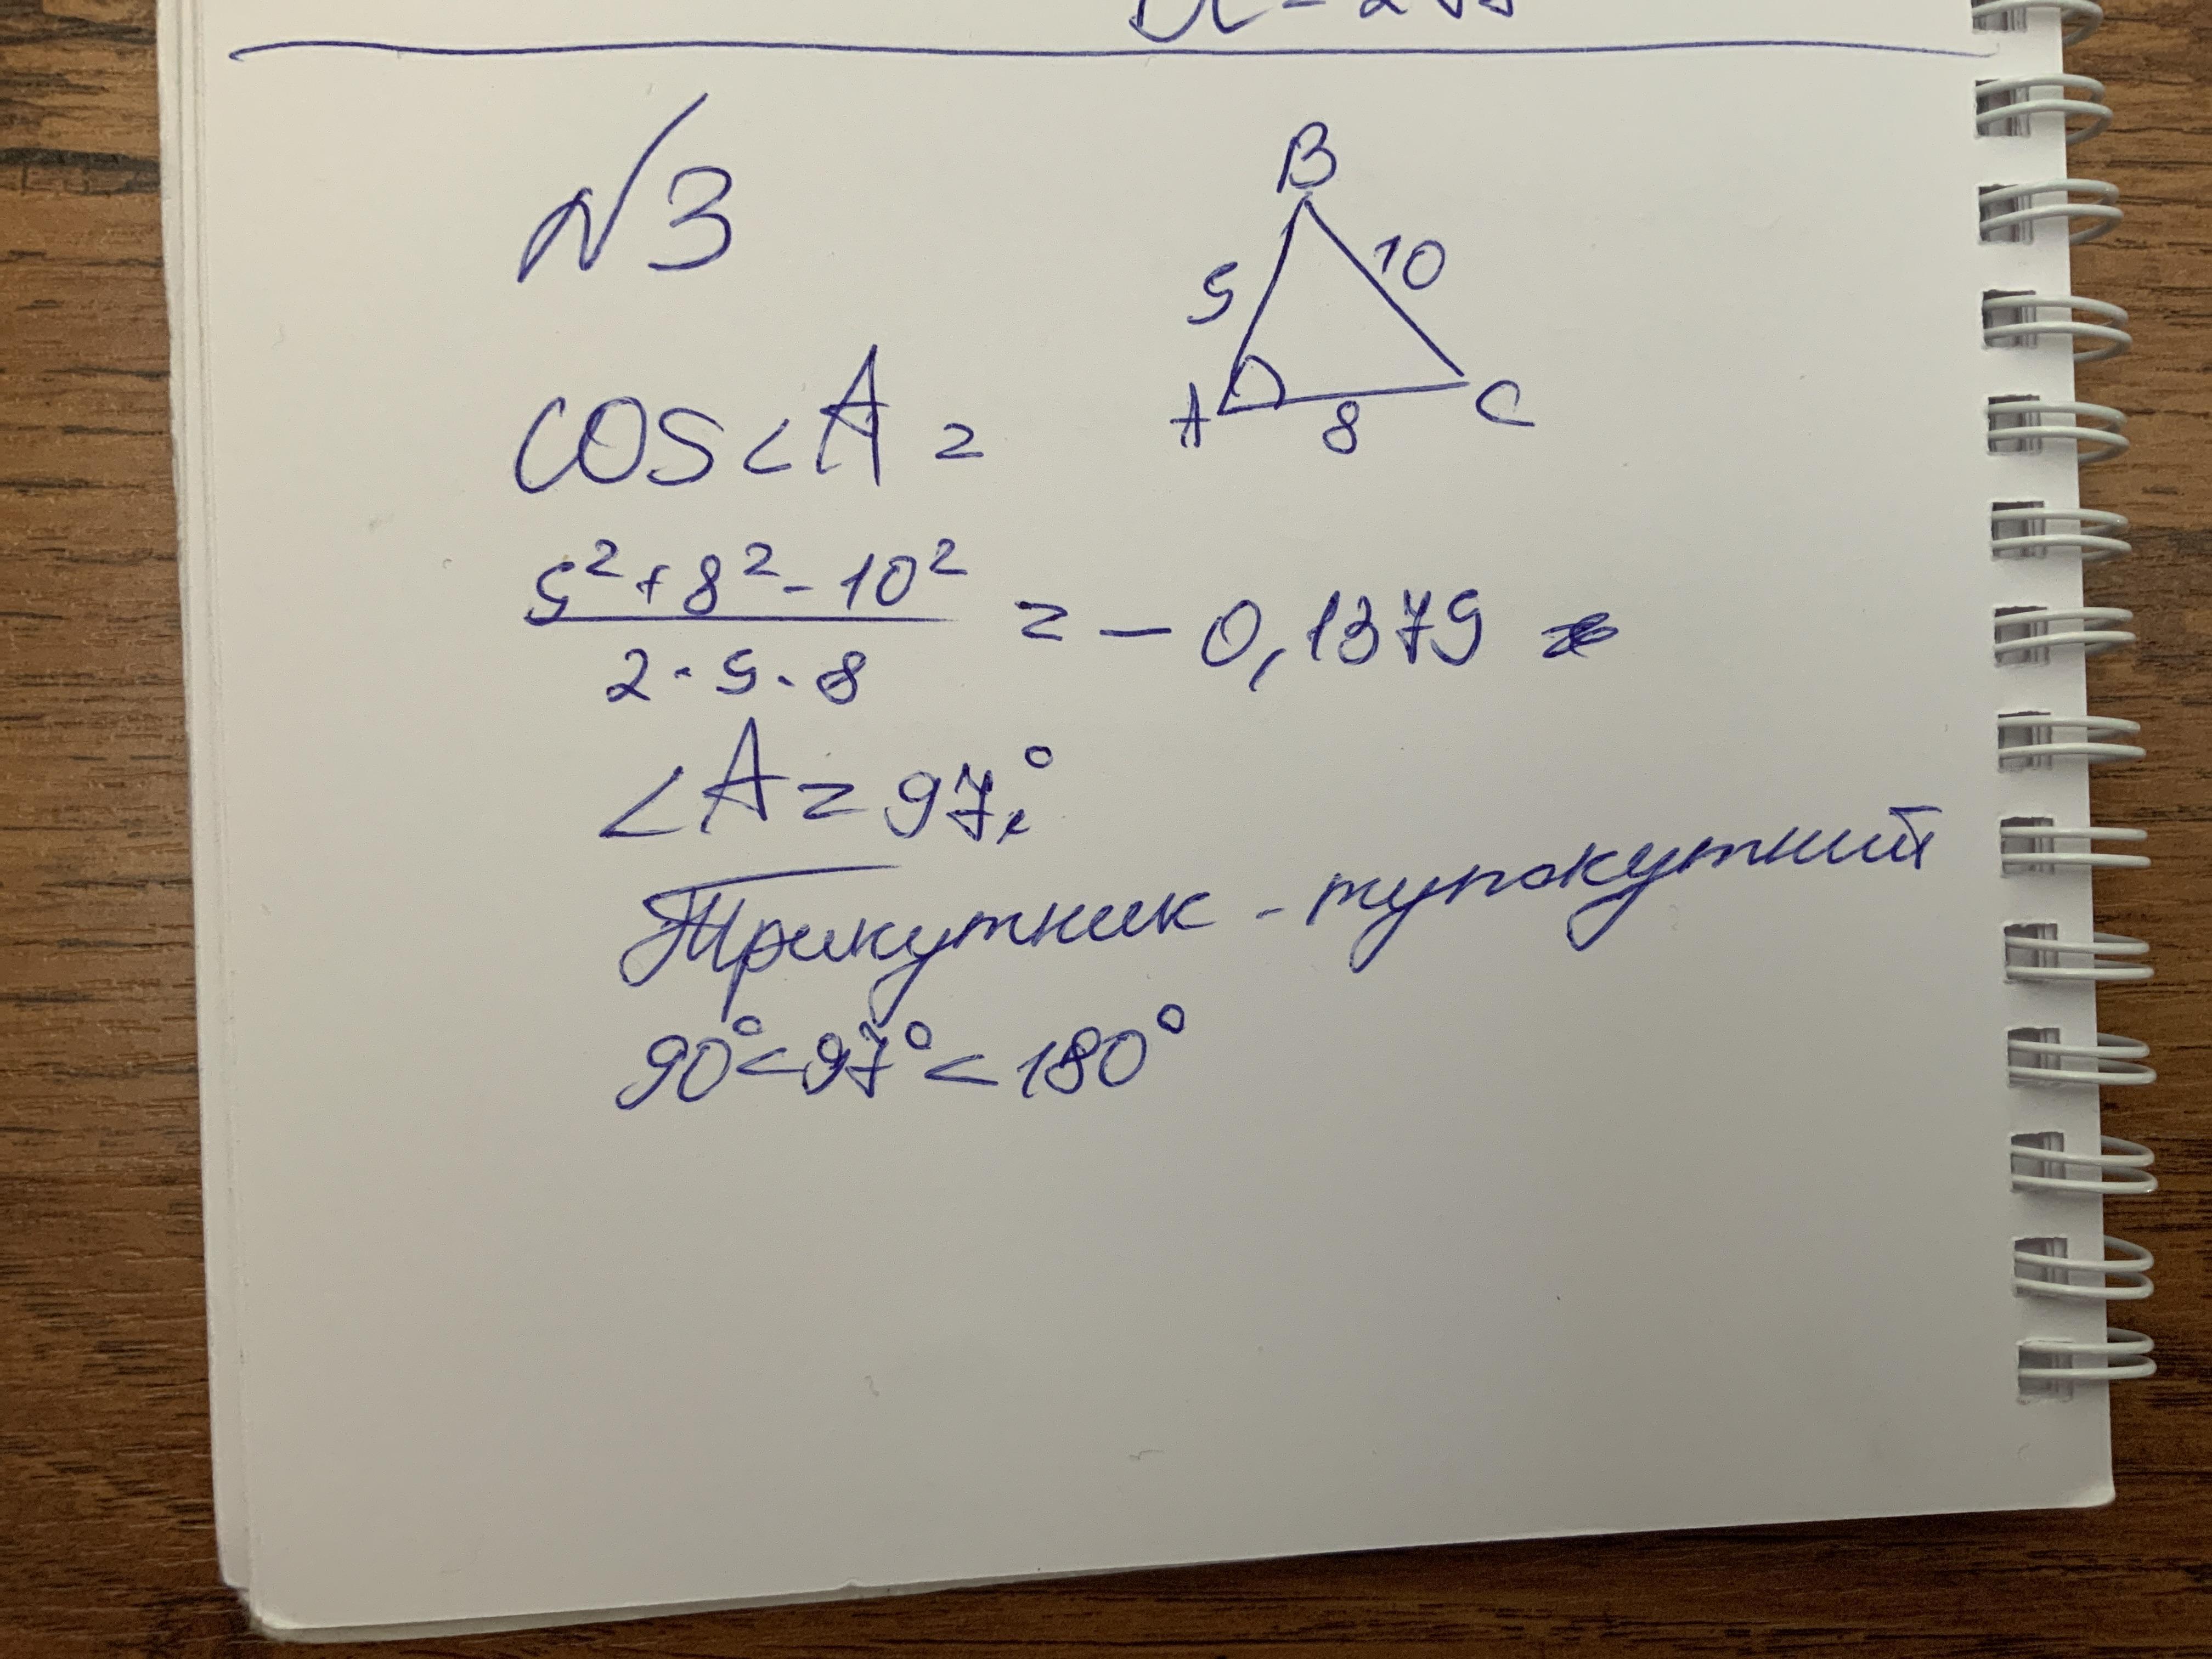 №3
B
5
10
A
8
C
cos<A =
5²+8²-10²
2·5·8
= -0,1379
<A=97°
Трикутник - тупокутний
90°<97°<180°